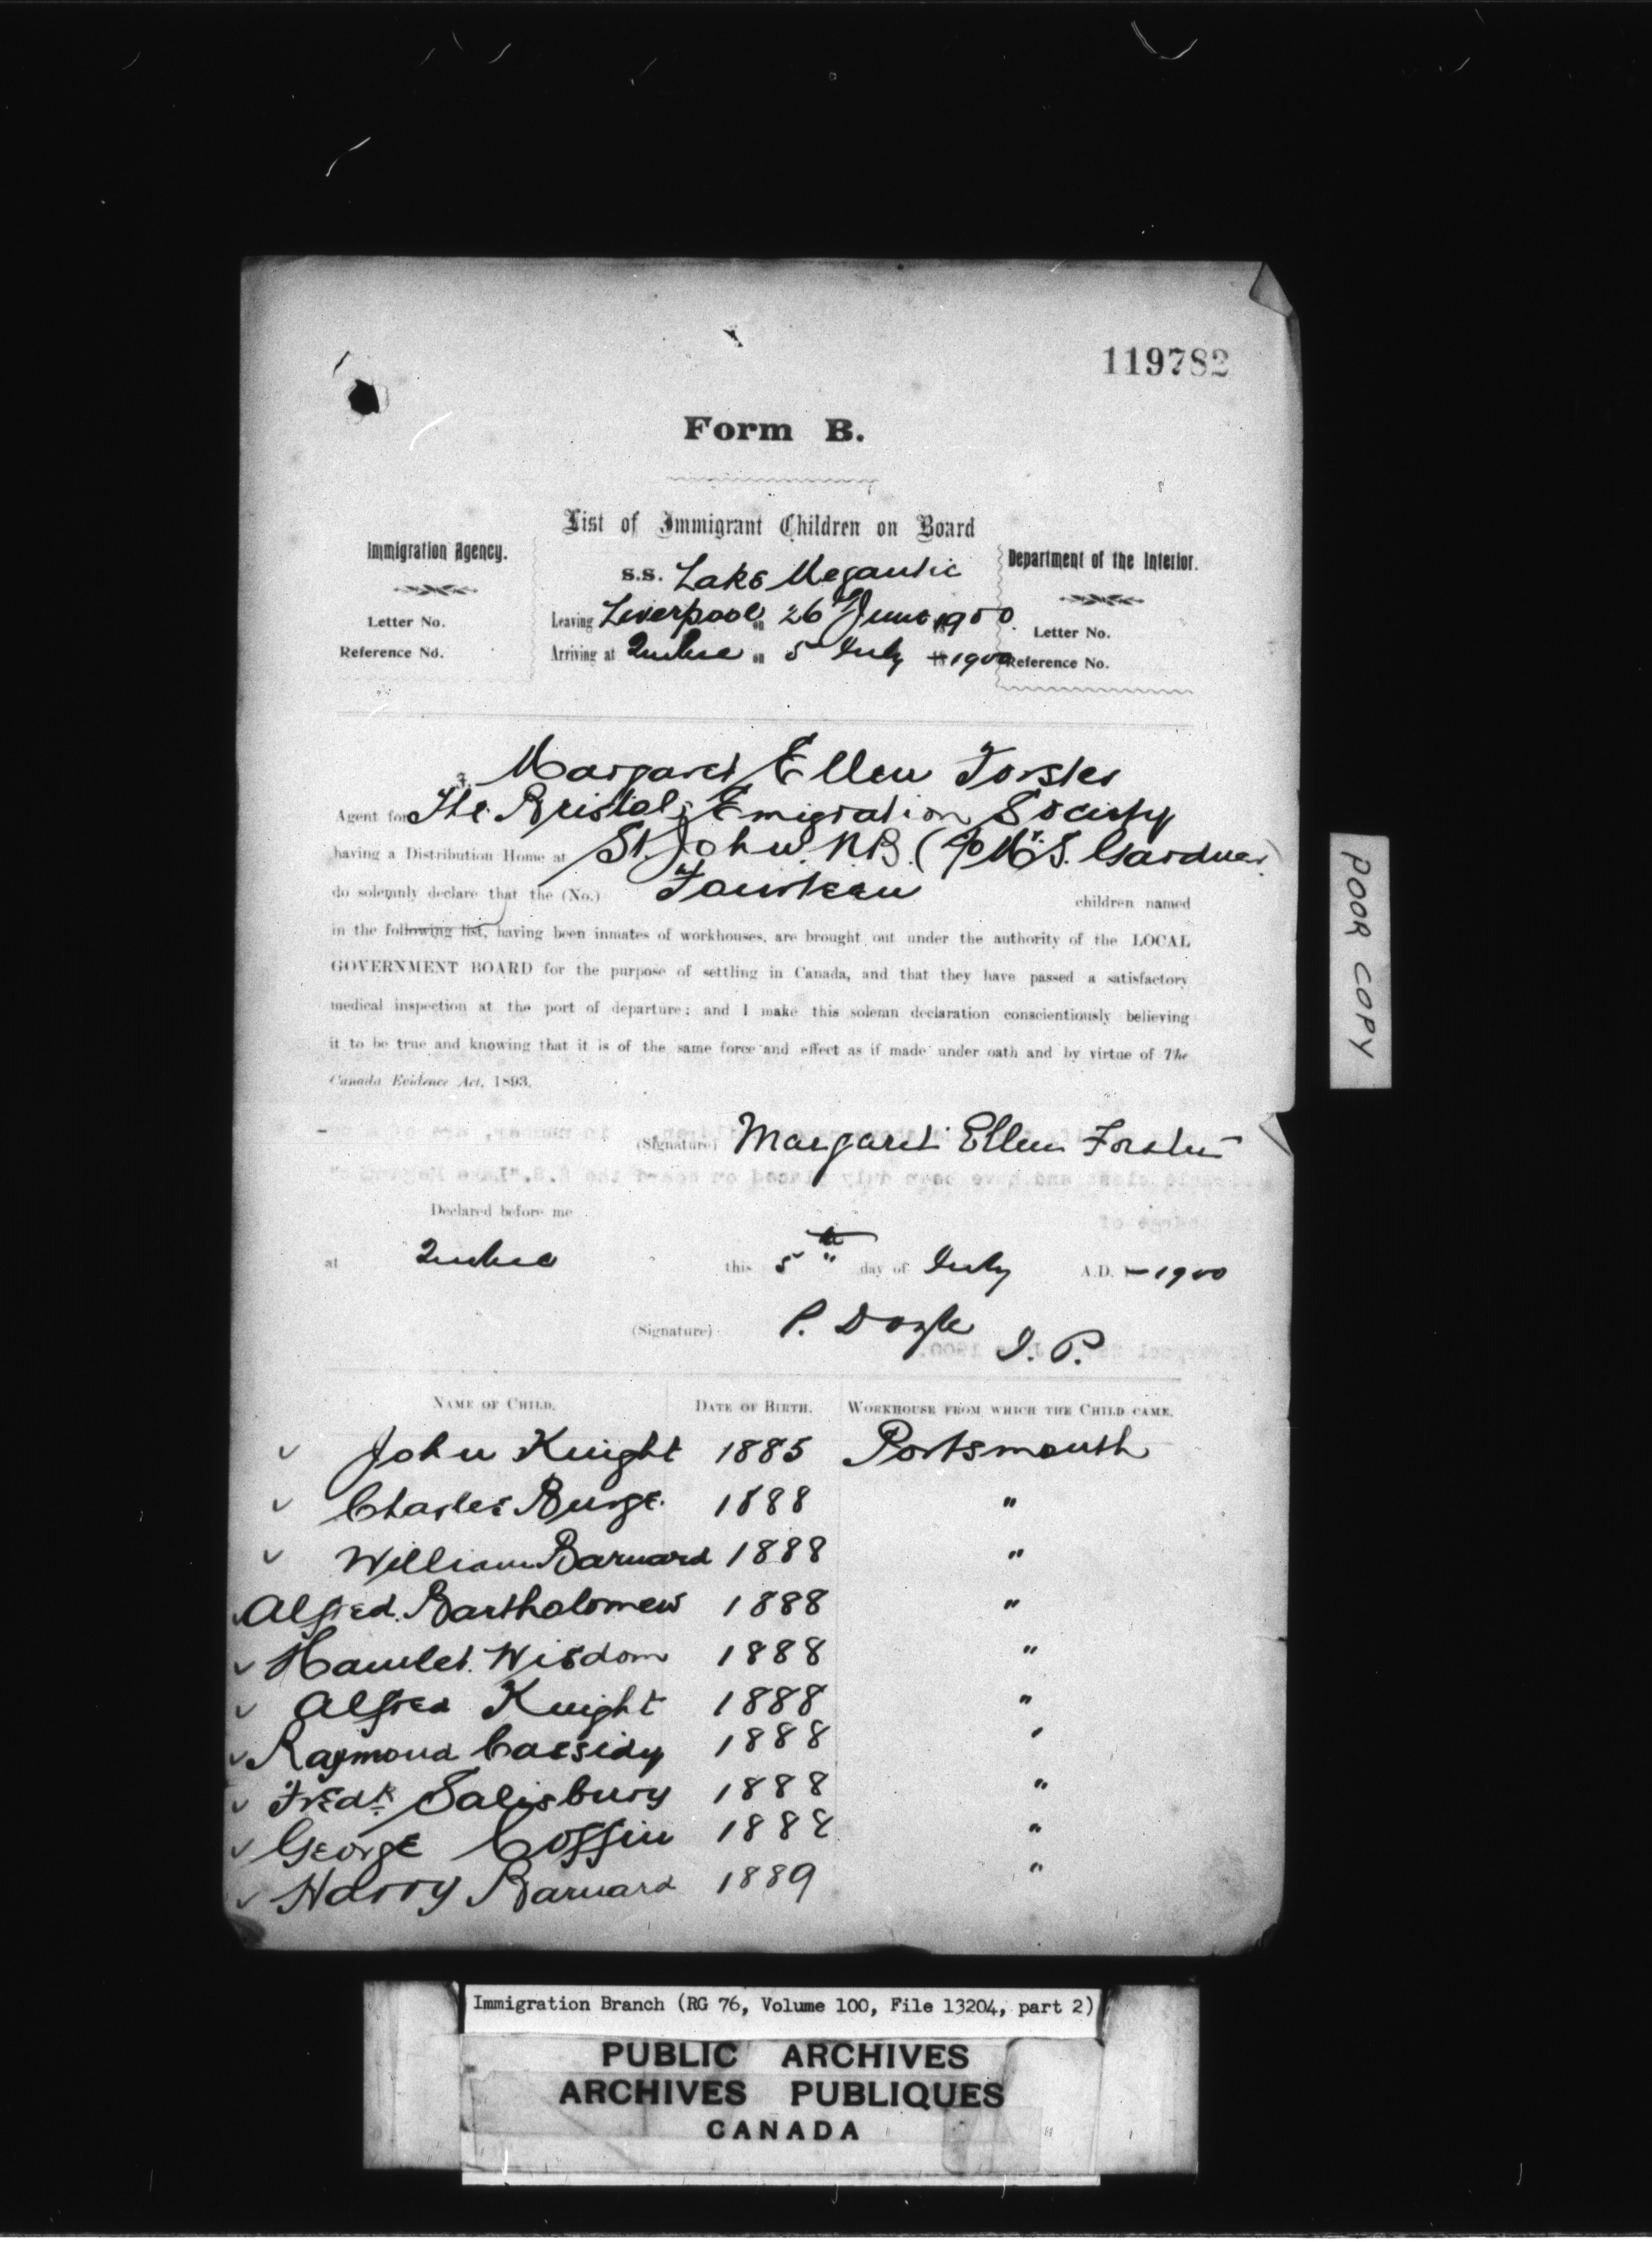 119782
Form B.
List of Immigrant Children on Board
Immigration Agency.
Department of the Interior.
S.S. Lake Megantic
Leaving Liverpool on 26 June 1900
Letter No.
Letter No.
Arriving at Quebec on 5 July 18 1900
Reference No.
Reference No.
I, Margaret Ellen Forster
Agent for The Bristol Emigration Society
having a Distribution Home at St. John N.B. (c/o Mr. S. Gardner)
do solemnly declare that the (No.) Fourteen children named
in the following list, having been inmates of workhouses, are brought out under the authority of the LOCAL
GOVERNMENT BOARD for the purpose of settling in Canada, and that they have passed a satisfactory
medical inspection at the port of departure; and I make this solemn declaration conscientiously believing
it to be true and knowing that it is of the same force and effect as if made under oath and by virtue of The
Canada Evidence Act, 1893.
(Signature) Margaret Ellen Forster
Declared before me
at Quebec this 5th day of July A.D. 1900
(Signature) P. Doyle
J. P.
NAME OF CHILD. DATE OF BIRTH. WORKHOUSE FROM WHICH THE CHILD CAME.
✓ John Knight 1885 Portsmouth
✓ Charles Burge 1888 "
✓ William Barnard 1888 "
✓ Alfred Bartholomew 1888 "
✓ Hamlet Wisdom 1888 "
✓ Alfred Knight 1888 "
✓ Raymond Cassidy 1888 "
✓ Fredk Salisbury 1888 "
✓ George Coffin 1888 "
✓ Harry Barnard 1889 "
POOR COPY
Immigration Branch (RG 76, Volume 100, File 13204, part 2)
PUBLIC ARCHIVES
ARCHIVES PUBLIQUES
CANADA